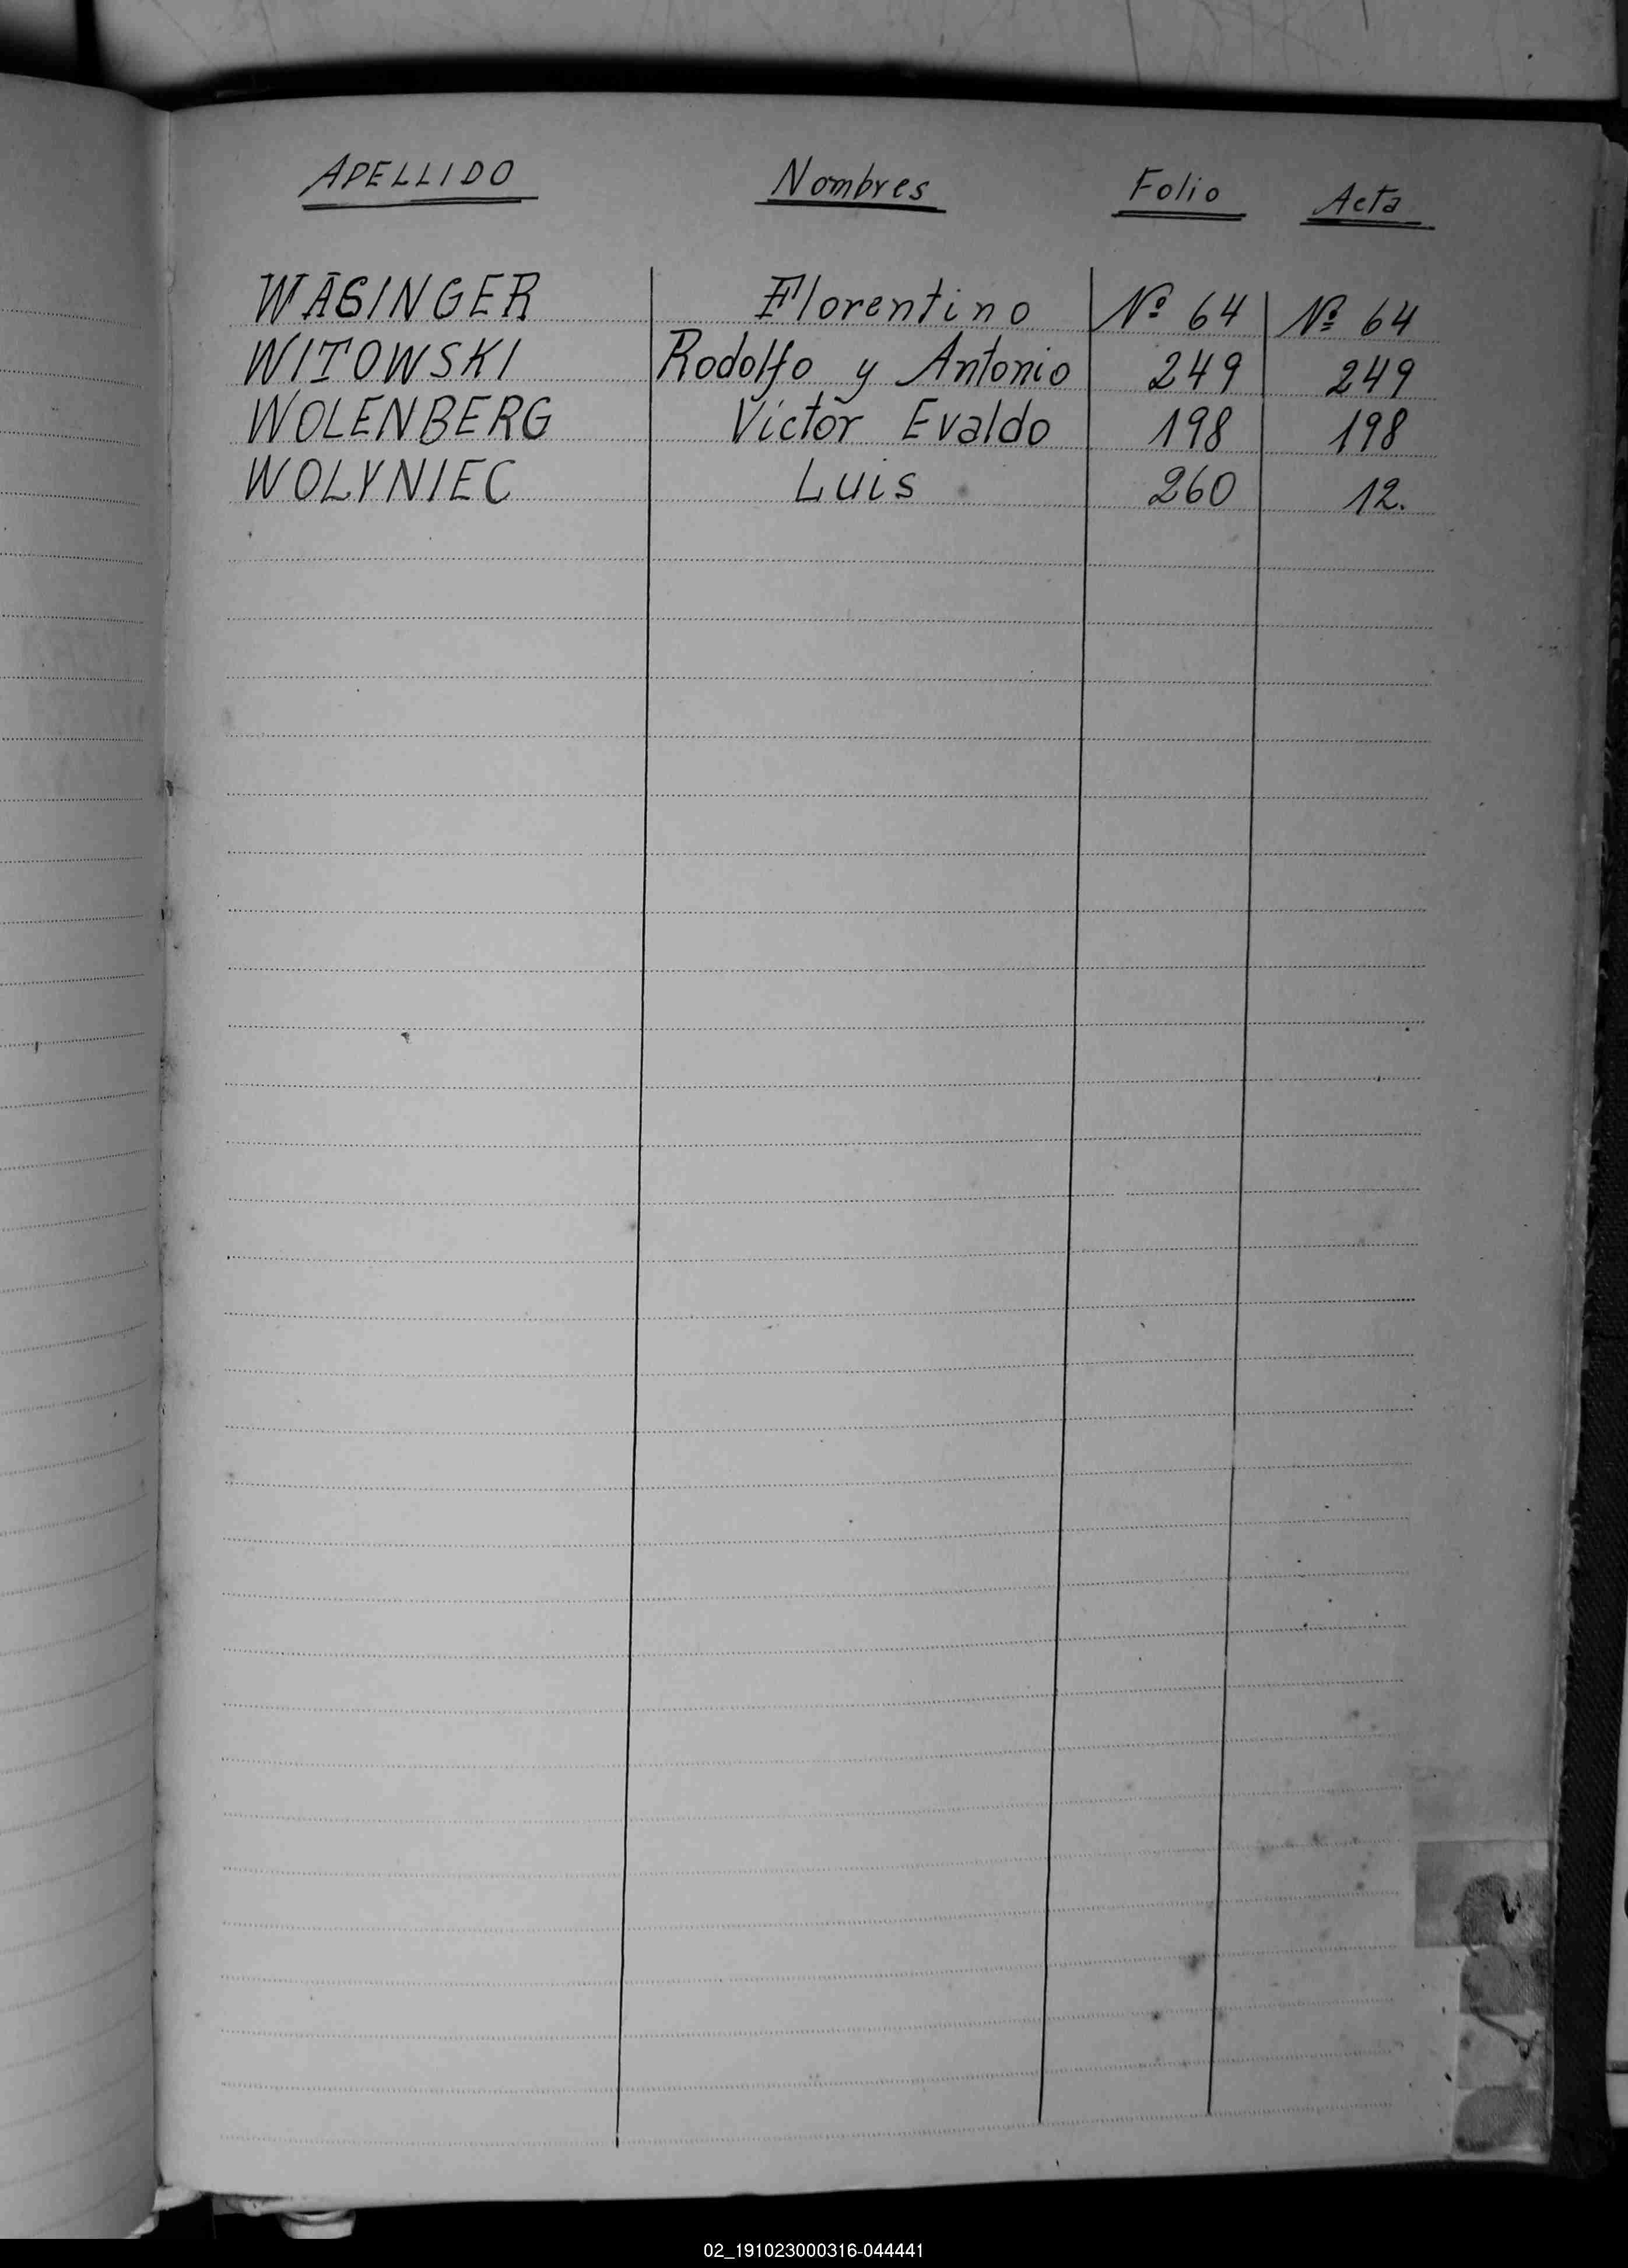 APELLIDO Nombres Folio Acta
WASINGER Florentino Nº 64 Nº 64
WITOWSKI Rodolfo y Antonio 249 249
WOLENBERG Victor Evaldo 198 198
WOLYNIEC Luis 260 12.
W
02_191023000316-044441